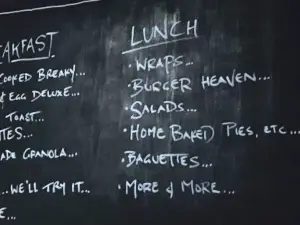 AKFAST
COOKED BREAKY...
& EGG DELUXE...
TOAST...
TTES...
ADE GRANOLA...
...WE'LL TRY IT...
E...
LUNCH
• WRAPS...
• BURGER HEAVEN...
• SALADS...
• HOME BAKED PIES, ETC...
• BAGUETTES...
• MORE & MORE...